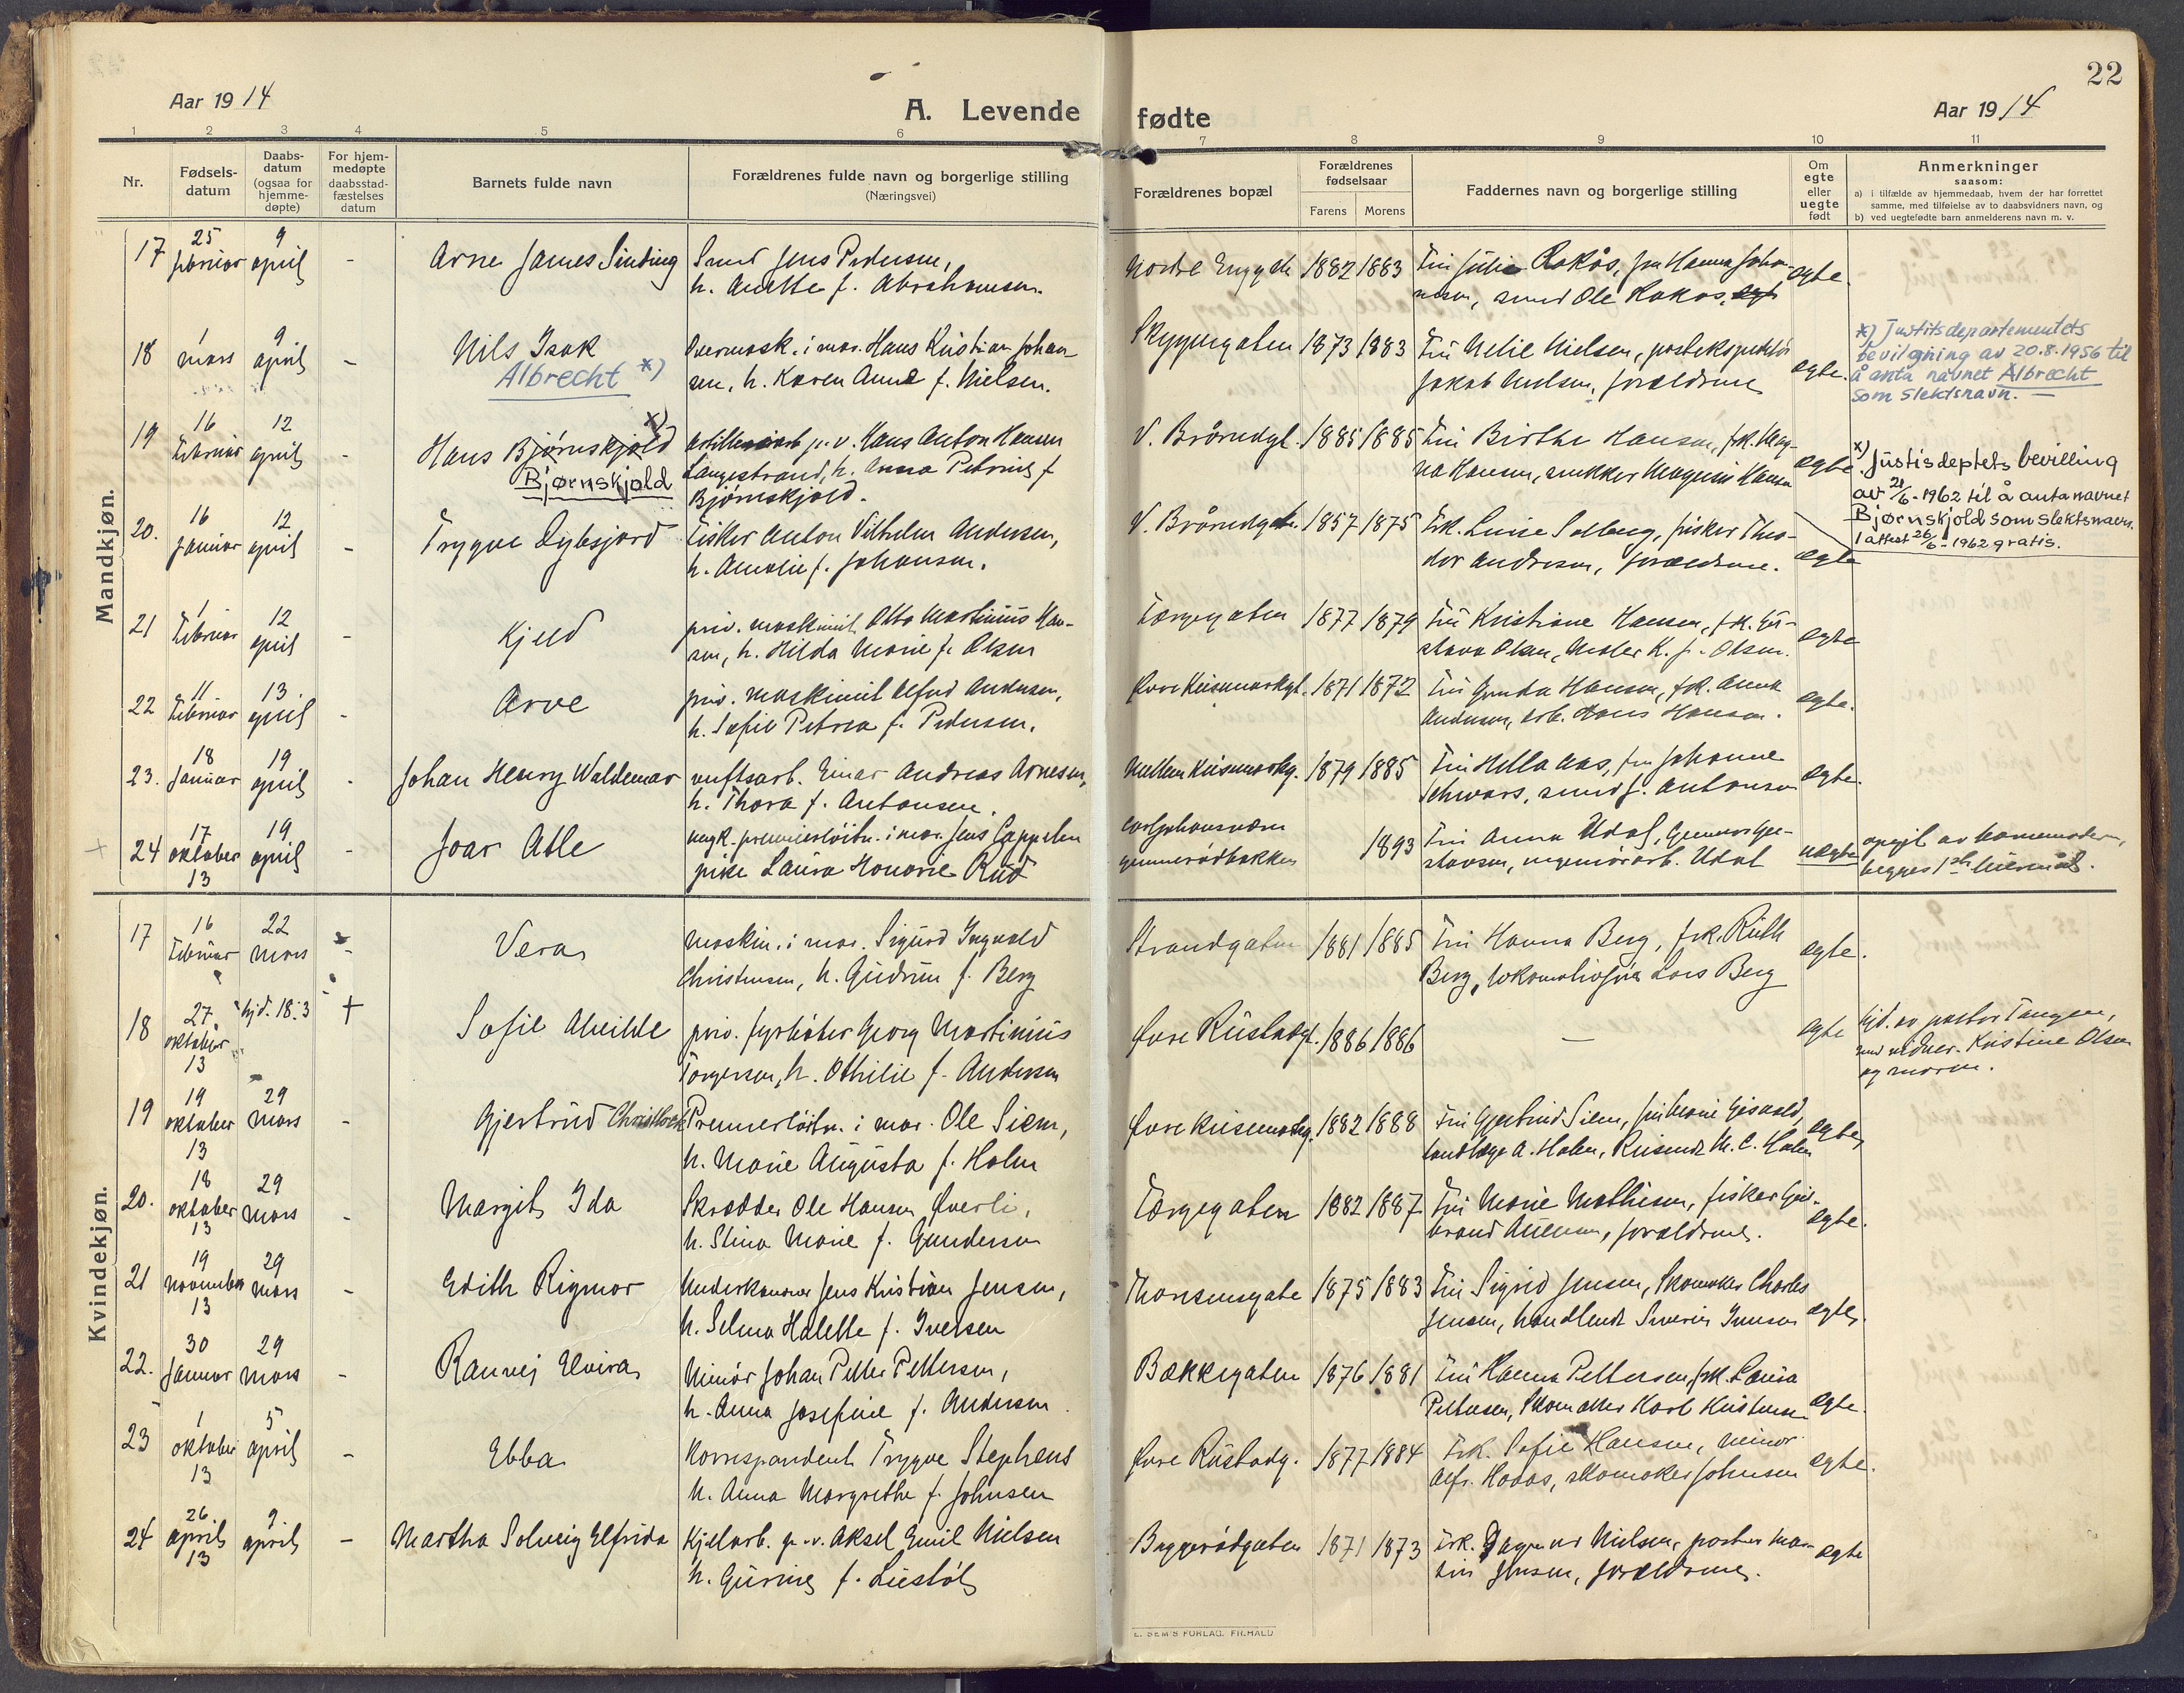 22
Aar 1914
A. Levende fødte
Aar 1914
1 2 3 4 5 6 7 8 9 10 11
Nr.
Fødselsdatum
Daabsdatum (ogsaa for hjemmedøpte)
For hjemmedøpte daabsstadfæstelses datum
Barnets fulde navn
Forældrenes fulde navn og borgerlige stilling
(Næringsvei)
Forældrenes bopæl
Forældrenes fødselsaar
Farens Morens
Faddernes navn og borgerlige stilling
Om egte eller uegte født
Anmerkninger
saasom:
a) i tilfælde av hjemmedaab, hvem der har forrettet
samme, med tilføielse av to daabsvidners navn, og
b) ved uegtefødte barn anmelderens navn m. v.
Mandkjøn.
17 25 februar 9 april - Arne James Sinding Smed Jens Pedersen,
h. Anette f. Abrahamsen.
Nordre Enggt. 1882 1883 Fru Julie Rakås, fru Hanna Johansen, smed Ole Rakås, egte.
18 1 mars 9 april - Nils Isak
Albrecht *)
Overmask. i mar. Hans Kristian Johansen, h. Karen Anna f. Nielsen.
Skyggengaten 1873 1883 Fru Nelie Nielsen, postekspeditør
Jakob Nielsen, forældrene egte.
*) Justitsdepartementets
bevilgning av 20.8.1956 til
å anta navnet Albrecht
som slektsnavn. -
19 16 februar 12 april - Hans Bjørnskjold x)
Bjørnskjold
artilleriarb. p. v. Hans Anton Hansen
Langestrand, h. Anna Petrine f.
Bjørnskjold.
V. Brårudgt. 1885 1885 Fru Birthe Hansen, frk. Magna Hansen, snekker Magnus Hansen egte.
x) Justisdeptets bevilling
av 21/6-1962 til å anta navnet
Bjørnskjold som slektsnavn.
1 attest 26/6-1962 gratis.
20. 16 januar 12 april - Trygve Dybsjord Fisker Anton Vilhelm Andersen,
h. Amalie f. Johansen.
V. Brårudgt. 1857 1875 Frk. Luise Solberg, fisker Theodor Andresen, forældrene. egte
21 1 februar 12 april - Kjeld priv. maskinist Otto Martinius Hansen, h. Hilda Marie f. Olsen
Færgegaten 1877 1879 Fru Kristiane Hansen, frk. Gustava Olsen, maler K. J. Olsen. egte
22 11 februar 13. april - Arve priv. maskinist Alfred Andersen,
h. Sofie Petrea f. Pedersen.
Øvre Keisemarkgt. 1871 1872 Fru Gunda Hansen, frk. Anna
Andersen, arb. Hans Hansen. egte.
23. 18 januar 19 april - Johan Henry Waldemar verftsarb. Einar Andreas Arnesen,
h. Thora f. Antonsen.
Mellem Keisemarkg. 1879 1885 Fru Hella Aas, fru Johanne
Schwars, smed J. Antonsen egte.
24 17 oktober 13 19 april - Joar Atle ungk. premierløitn. i mar. Jens Cappelen
pike Laura Honorie Rud
Carljohansværn
gunnerødbakken 1893 Fru Anna Udal, Gunnar Gustavsen, ingeniørarb. Udal uegte
opgit av barnemoren,
begges 1ste leiermål.
Kvindekjøn.
17 16 februar 22 mars - Vera Maskin. i mar. Sigurd Ingvald
Christensen, h. Gudrun f. Berg
Strandgaten 1881 1885 Fru Hanna Berg, frk. Ruth
Berg, lokomotivfører Lars Berg egte.
18 27 oktober 13 hjd. 18.3 + Sofie Alvilde priv. fyrbøter Georg Martinius
Torgersen, h. Othilie f. Andersen
Øvre Rustadgt. 1886 1886 - egte
hjd. av pastor Tangen,
med vidner. Kristine Olsen
og moren.
19 19 oktober 13 29 mars - Gjertrud Premierløitn. i mar. Ole Siem,
h. Marie Augusta f. Holm
Øvre Keisemarkg. 1882 1888 Fru Gjertrud Siem, A. Holm, M. C. Holm egte
20. 18 oktober 13 29 mars - Margit Ida Skrædder Ole Hansen Øverli,
h. Stina Marie f. Gundersen
Færgegaten 1882 1887 Fru Marie Mathisen, fisker forældrene. egte.
21 19 november 13 29 mars - Edith Rigmor Underkanoner Jens Kristian Jensen,
h. Selma Halette f. Iversen
Thorsensgate 1875 1883 Fru Sigrid Jensen, Skomaker Charles
Jensen, handlende Severin Iversen egte.
22. 30 januar 29 mars - Ranvej Elvira Minør Johan Petter Pettersen,
h. Anna Josefine f. Andersen.
Bækkegaten 1876 1881 Fru Hanna Pettersen, frk. Laura
Pettersen, Skomaker Karl Kristensen egte.
23 1 oktober 13 5 april - Ebba Korrespondent Trygve Stephens
h. Anna Margrethe f. Johnsen
Øvre Rustadg. 1877 1884 Frk. Sofie Hansen, minør
Alfr. Hoaas, skomaker Johnsen egte.
24 26. april 13 9 april - Martha Solveig Elfrida Kjelarb. p. v. Aksel Emil Nielsen
h. Gurine f. Liestøl
Baggerødgaten 1871 1873 Frk. Dagmar Nielsen, postm. Martin Jensen, forældrene. egte
E. SEM'S FORLAG. FR.HALD